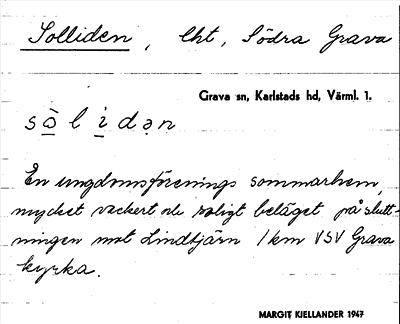 Solliden, lht, Södra Grava
Grava sn, Karlstads hd, Värml. 1.
sòlidən
En ungdomsförenings sommarhem,
mycket vackert och soligt beläget på slutt-
ningen mot Lindtjärn 1 km VSV Grava
kyrka.
MARGIT KJELLANDER 1947